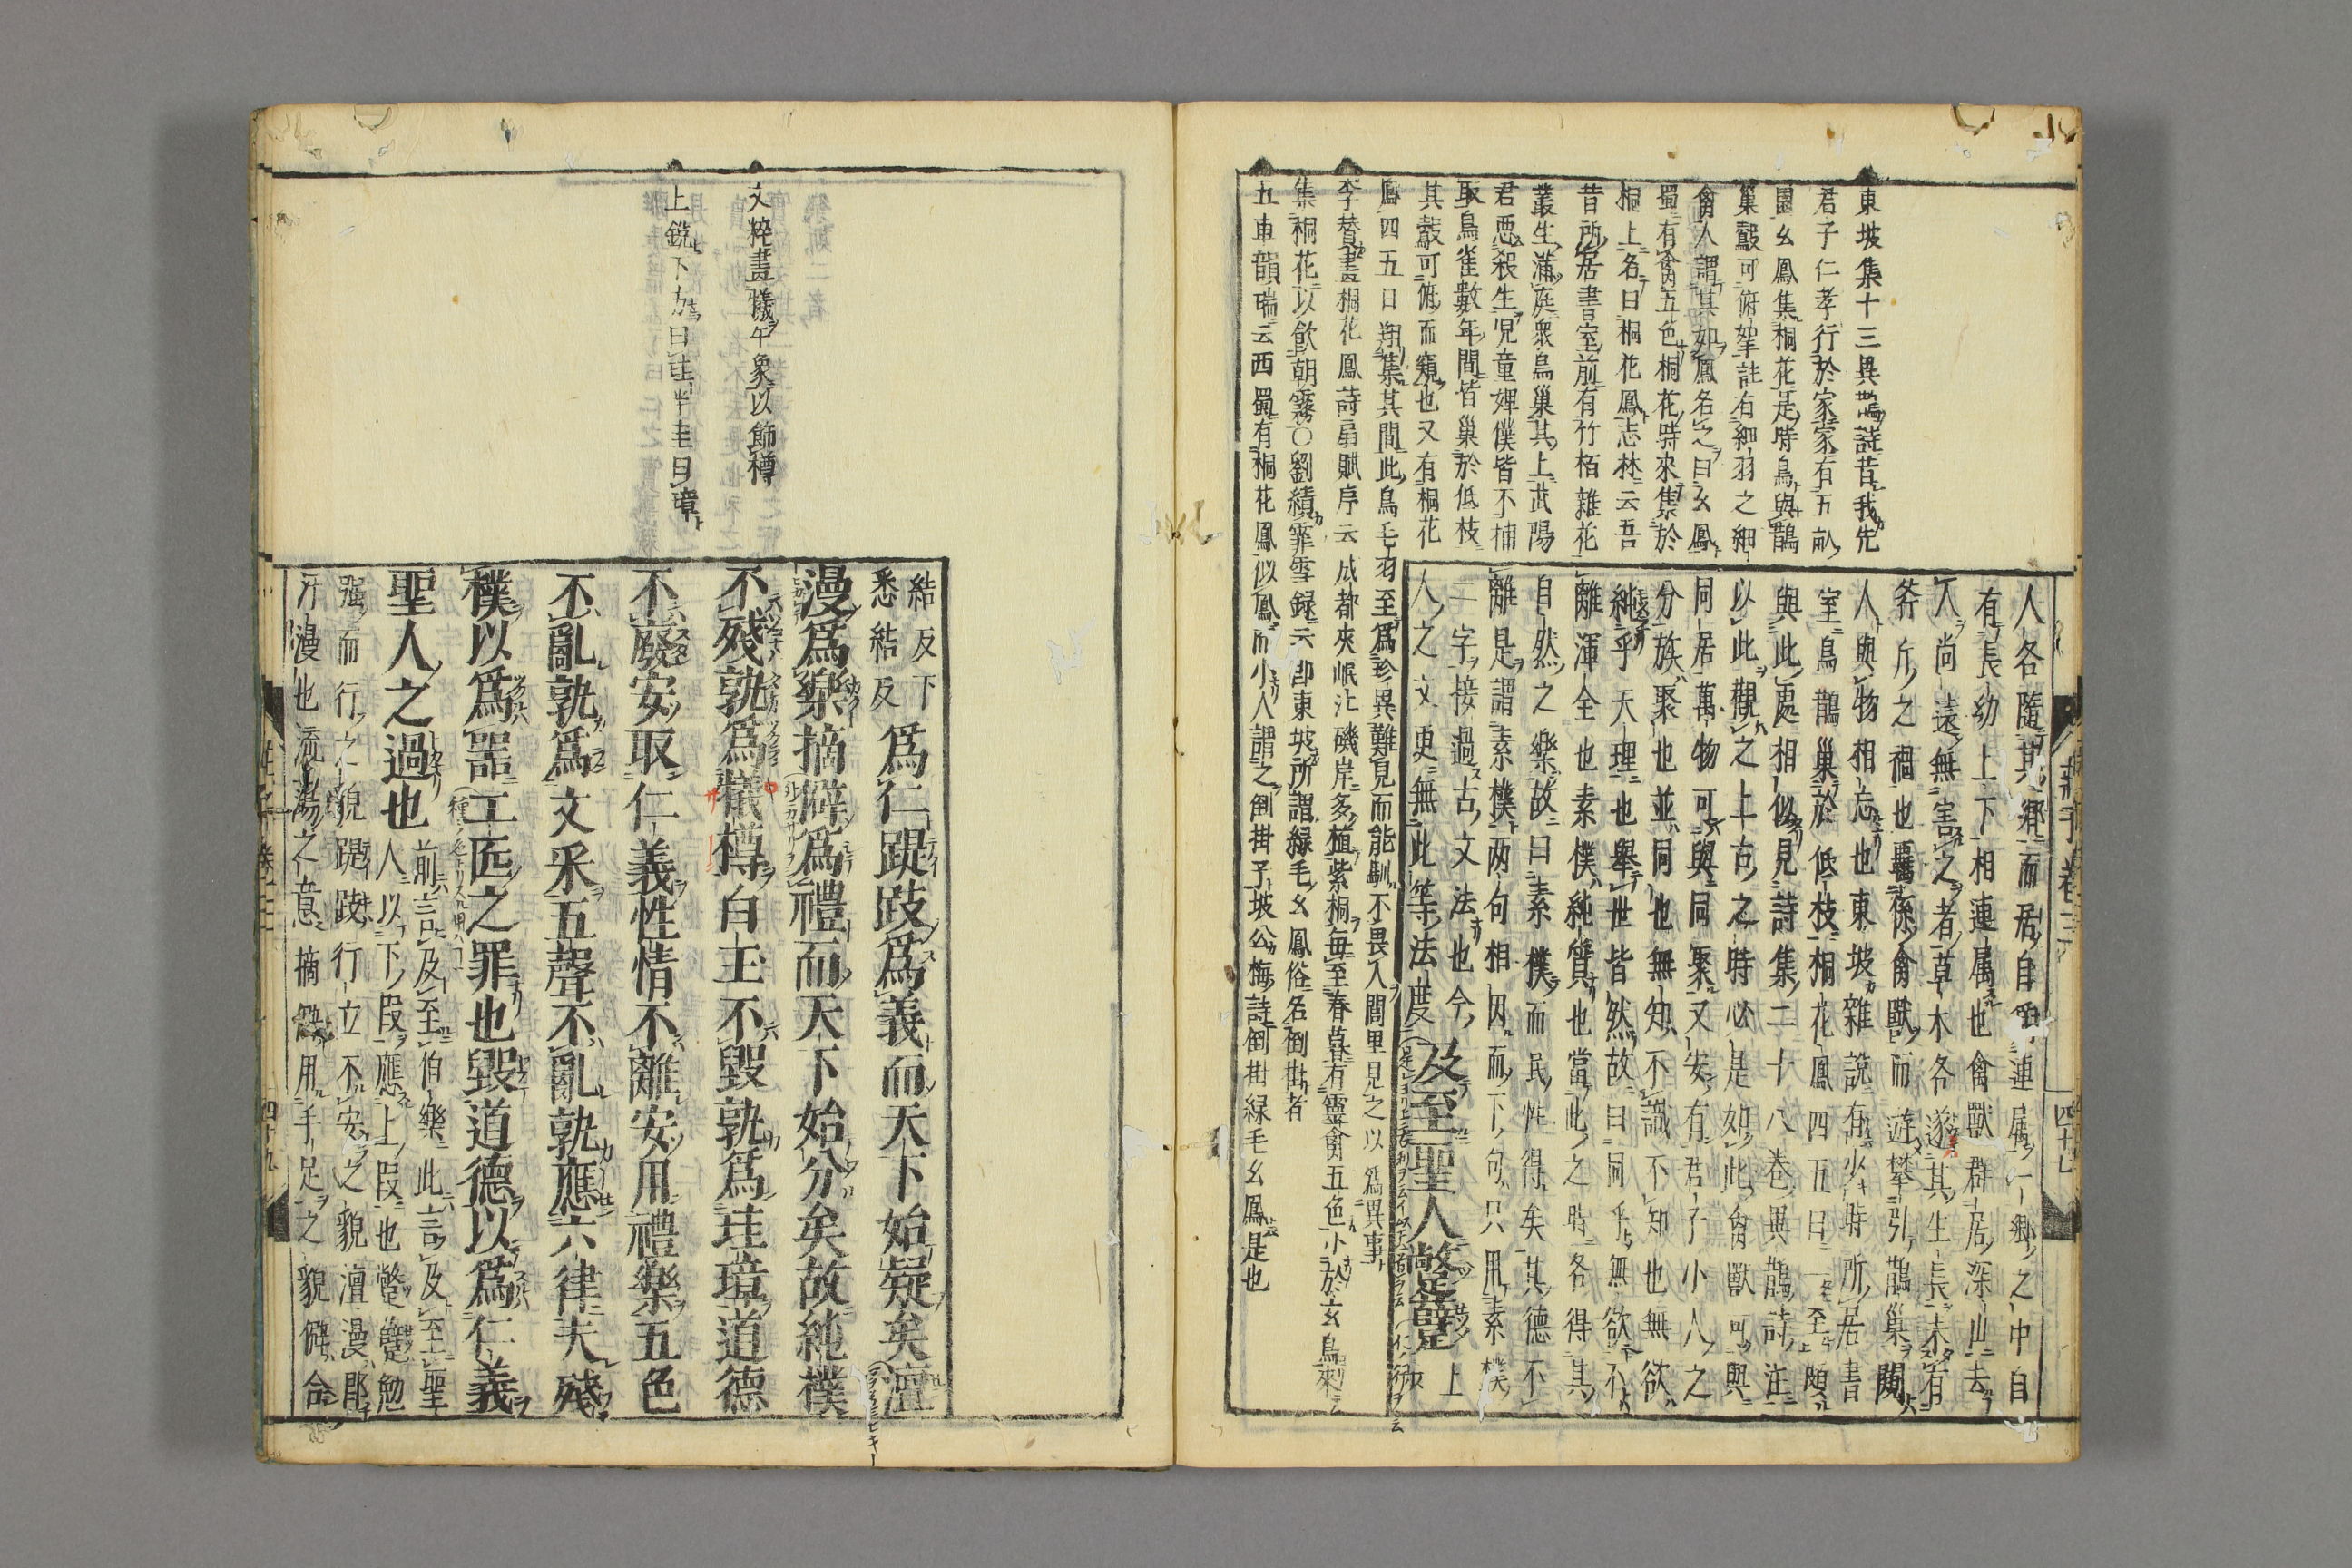 東坡集十三異鵲詩昔我先
君子仁孝行於家家有五畝
園幺鳳集桐花是時烏與鵲
巢鷇可俯拏註有細羽之細
禽人謂其如鳳名之曰幺鳳
蜀有禽五色桐花時來集於
桐上名曰桐花鳳志林云吾
昔所居書室前有竹栢雜花
叢生滿庭衆鳥巢其上武陽
君惡殺生兒童婢僕皆不捕
取鳥雀數年間皆巢於低枝
其鷇可俯而窺也又有桐花
鳳四五日翔集其間此鳥毛羽至爲珍異難見而能馴不畏人閭里見之以爲異事
李贊畫桐花鳳詩扇賦序云成都夾岷江磯岸多植紫桐每至春暮有靈禽五色小於玄鳥來
集桐花以飮朝露○劉績霏雪録云卽東坡所謂緑毛幺鳳俗名倒掛者
五車韻瑞云西蜀有桐花鳳似鳳而小人謂之倒掛子坡公梅詩倒掛緑毛幺鳳是也
人各隨其鄕而居自爲連属一鄕之中自
有長幼上下相連属也禽獸群居深山去
人尚遠無害之者草木各遂其生長未有
斧斤之禍也羈係禽獸而遊攀引鵲巢闚
人與物相忘也東坡雜說有少時所居書
室鳥鵲巢於低枝相花鳳四五日一至頗
與此處相似見詩集二十八卷異鵲詩注
以此觀之上古之時必是如此禽獸可與
同居萬物可與同聚又安有君子小人之
分族聚也並同也無知不識不知也無欲
純乎天理也舉世皆然故曰同乎無欲不
離渾全也素僕純質也當此之時各得其
自然之樂故曰素樸而民性得矣其德不
離是謂素樸两句相因而下句只用素樸
二字接過古文法也今
人之文更無此等法度 及至聖人蹩躠
上
結反下
悉結反
爲仁踶跂爲義而天下始疑矣澶
漫爲樂摘僻爲禮而天下始分矣故純樸
不殘孰爲犠樽白玉不毀孰爲珪璋道德
不廢安取仁義性情不離安用禮樂五色
不亂孰爲文采五聲不亂孰應六律夫殘
樸以爲噐工匠之罪也毀道德以爲仁義
聖人之過也
前言只及至伯樂此言及至聖
人以下段應上段也蹩躠勉
強而行之仁貌踶跂行立不安之貌澶漫郎
汗漫也流蕩之意摘僻用手足之貌僻合
文粹畫犠牛象以飾樽
上銳下方曰圭半圭曰璋
莊子卷三
四十七
四十九